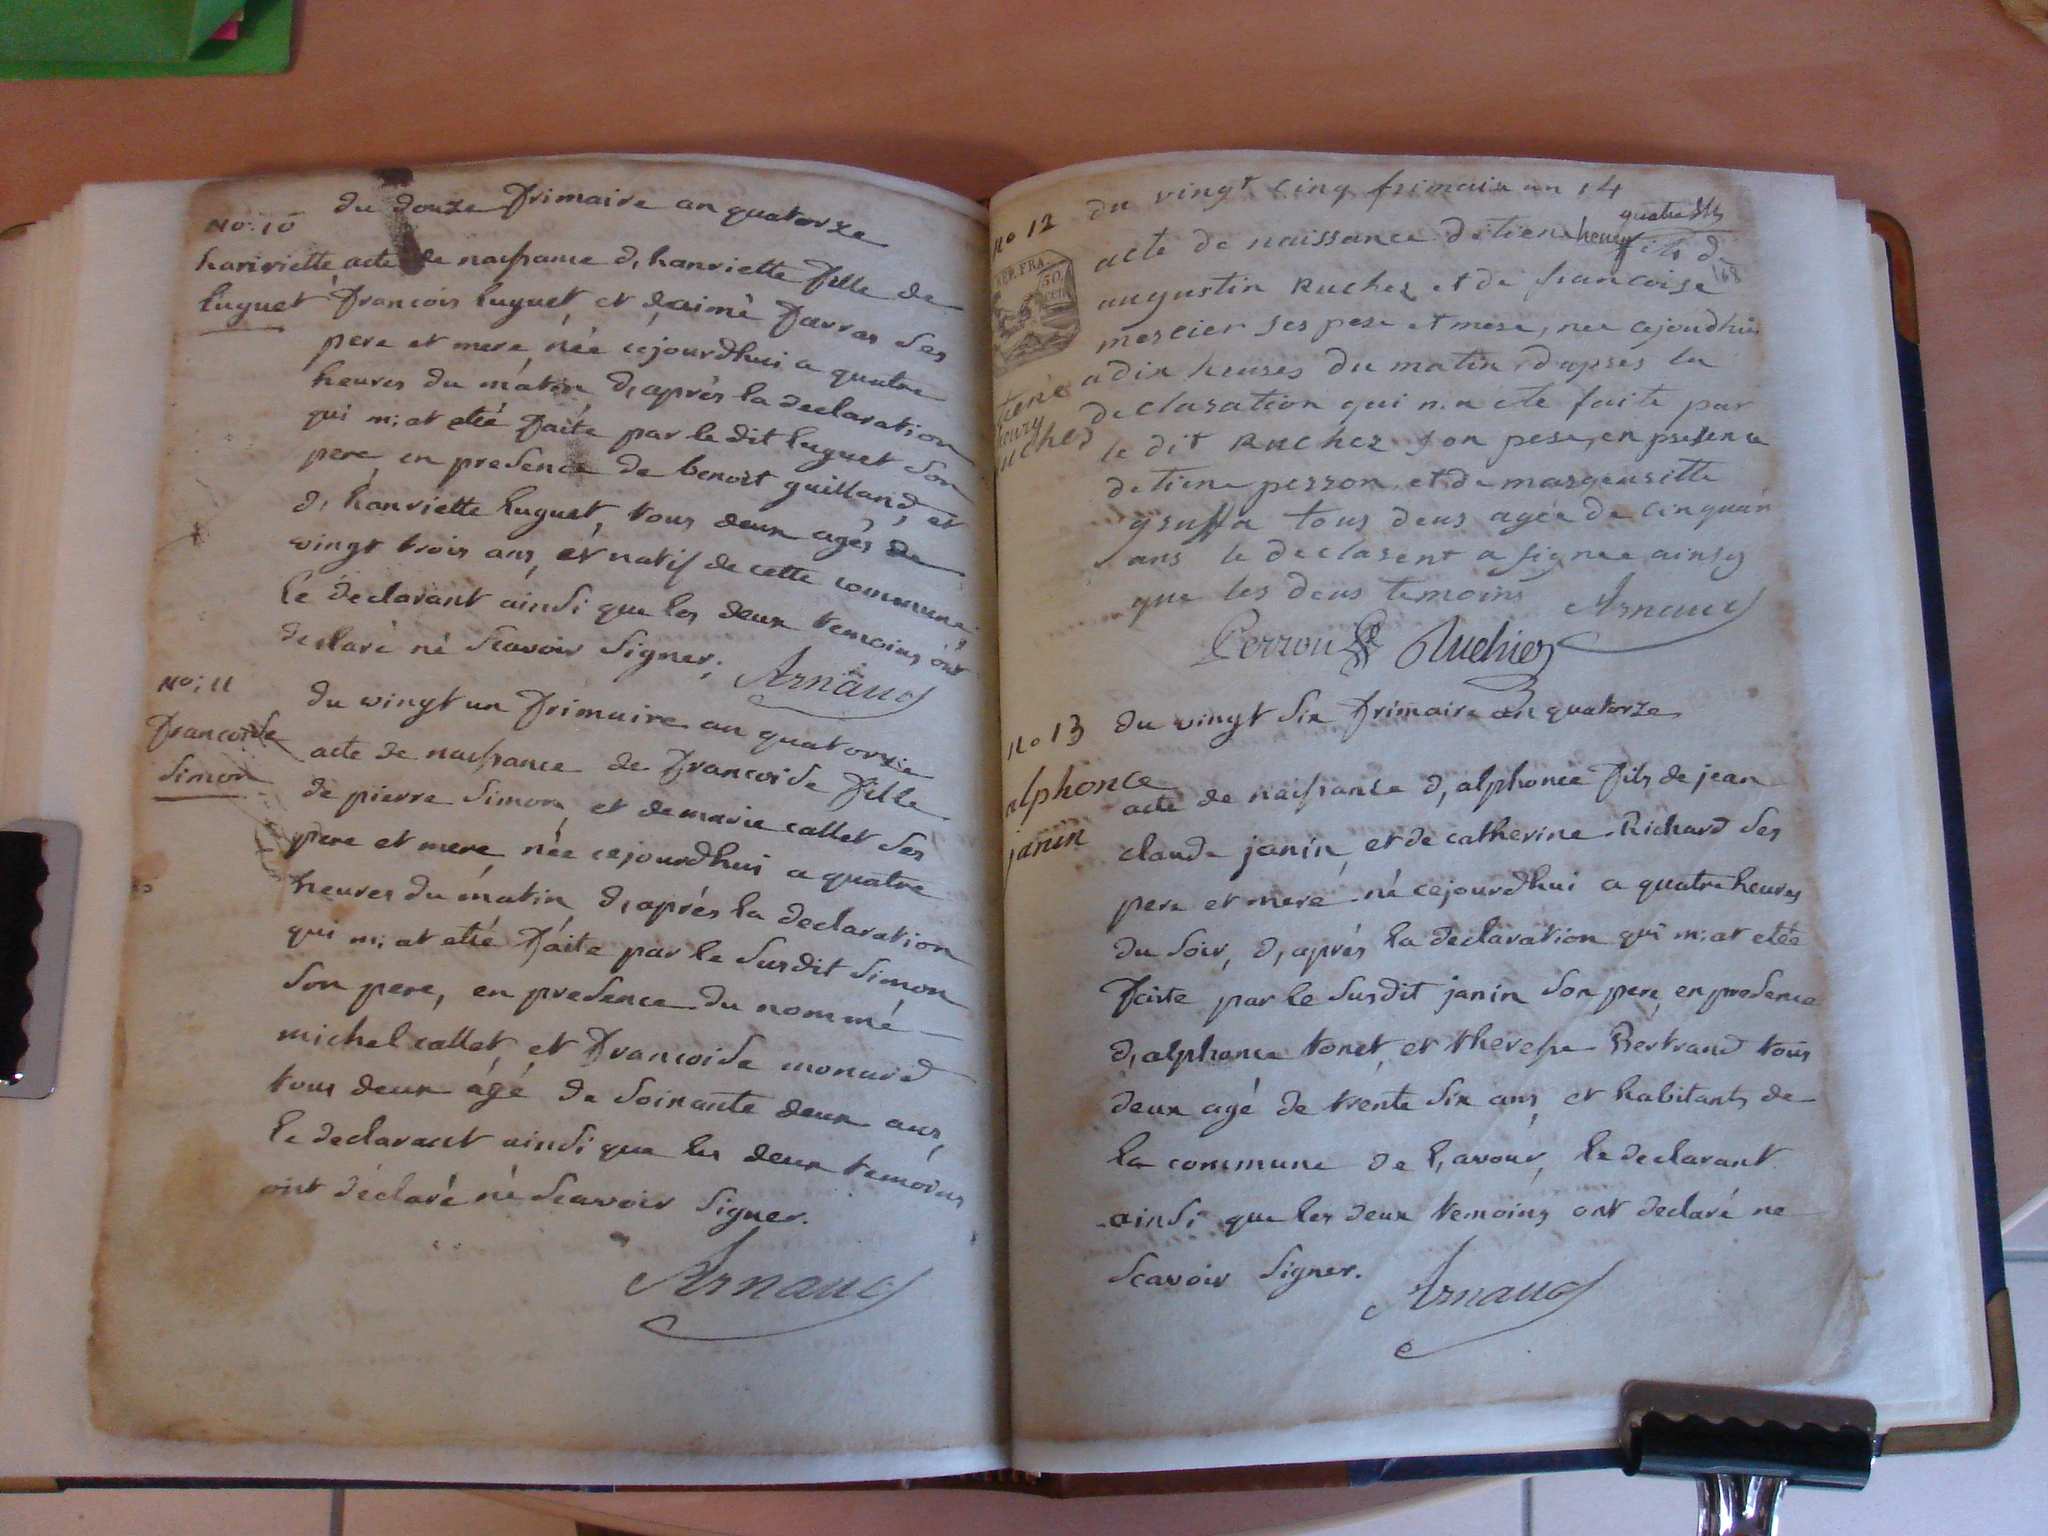 du douze frimaire an quatorze
No: 10
hanriette
luguet
acte de naissance d, hanriette fille de
francois luguet, et d, aimé favras ses
pere et mere, née cejourdhui a quatre
heures du matin, d, aprés la declaration
qui m; at etté faite par le dit luguet son
pere, en presence de benoit guilland, et
d, hanriette luguet, tous deux agés de
vingt trois ans, et natif de cette commune,
le déclarant ainsi que les deux temoins ont
declaré né scavoir signer;
Arnaud
No: 11
francoise
simon
du vingt un frimaire an quatorze
acte de naissance de francoise fille
de pierre simon, et de marie callet ses
pere et mere, née cejourdhui a quatre
heures du matin, d, aprés la declaration
qui m; at etté faite par le susdit simon
son pere, en presence du nommé
michel callet, et francoise monard
tous deux âgé de soixante deux ans,
le declarant ainsi que les deux temoins
ont déclaré né scavoir signer.
Arnaud
No 12
du vingt cinq frimaire an 14
REP. FRA.
50
CEN
tiene
heury
ruchez
acte de naissance de tiene heury fils de
168
augustin Ruchez et de francoise
mercier ses pere et mere, nee cejoudhui
a dix heures du matin, d'apres la
declaration qui m.a ete faite par
le dit Ruchez son pere, en presence
de tiene perron, et de margeuritte
gruffa tous deus agée de cinquan
ans le declarent a signee ainsy
que les deus temoins
Arnaud
Perron Ruchez
No 13
alphonce
janin
du vingt six frimaire an quatorze
acte de naissance d, alphonce fils de jean
claude janin, et de catherine Richard ses
pere et mere, né cejourdhui a quatre heures
du soir, d, aprés la declaration qui m; at etée
faite par le susdit janin son pere, en presence
d, alphonce tonet, et therese Bertrand tous
deux agé de trente six ans, et habitants de
la commune de l, avour, le declarant
ainsi que les deux temoins ont declaré ne
scavoir signer.
Arnaud